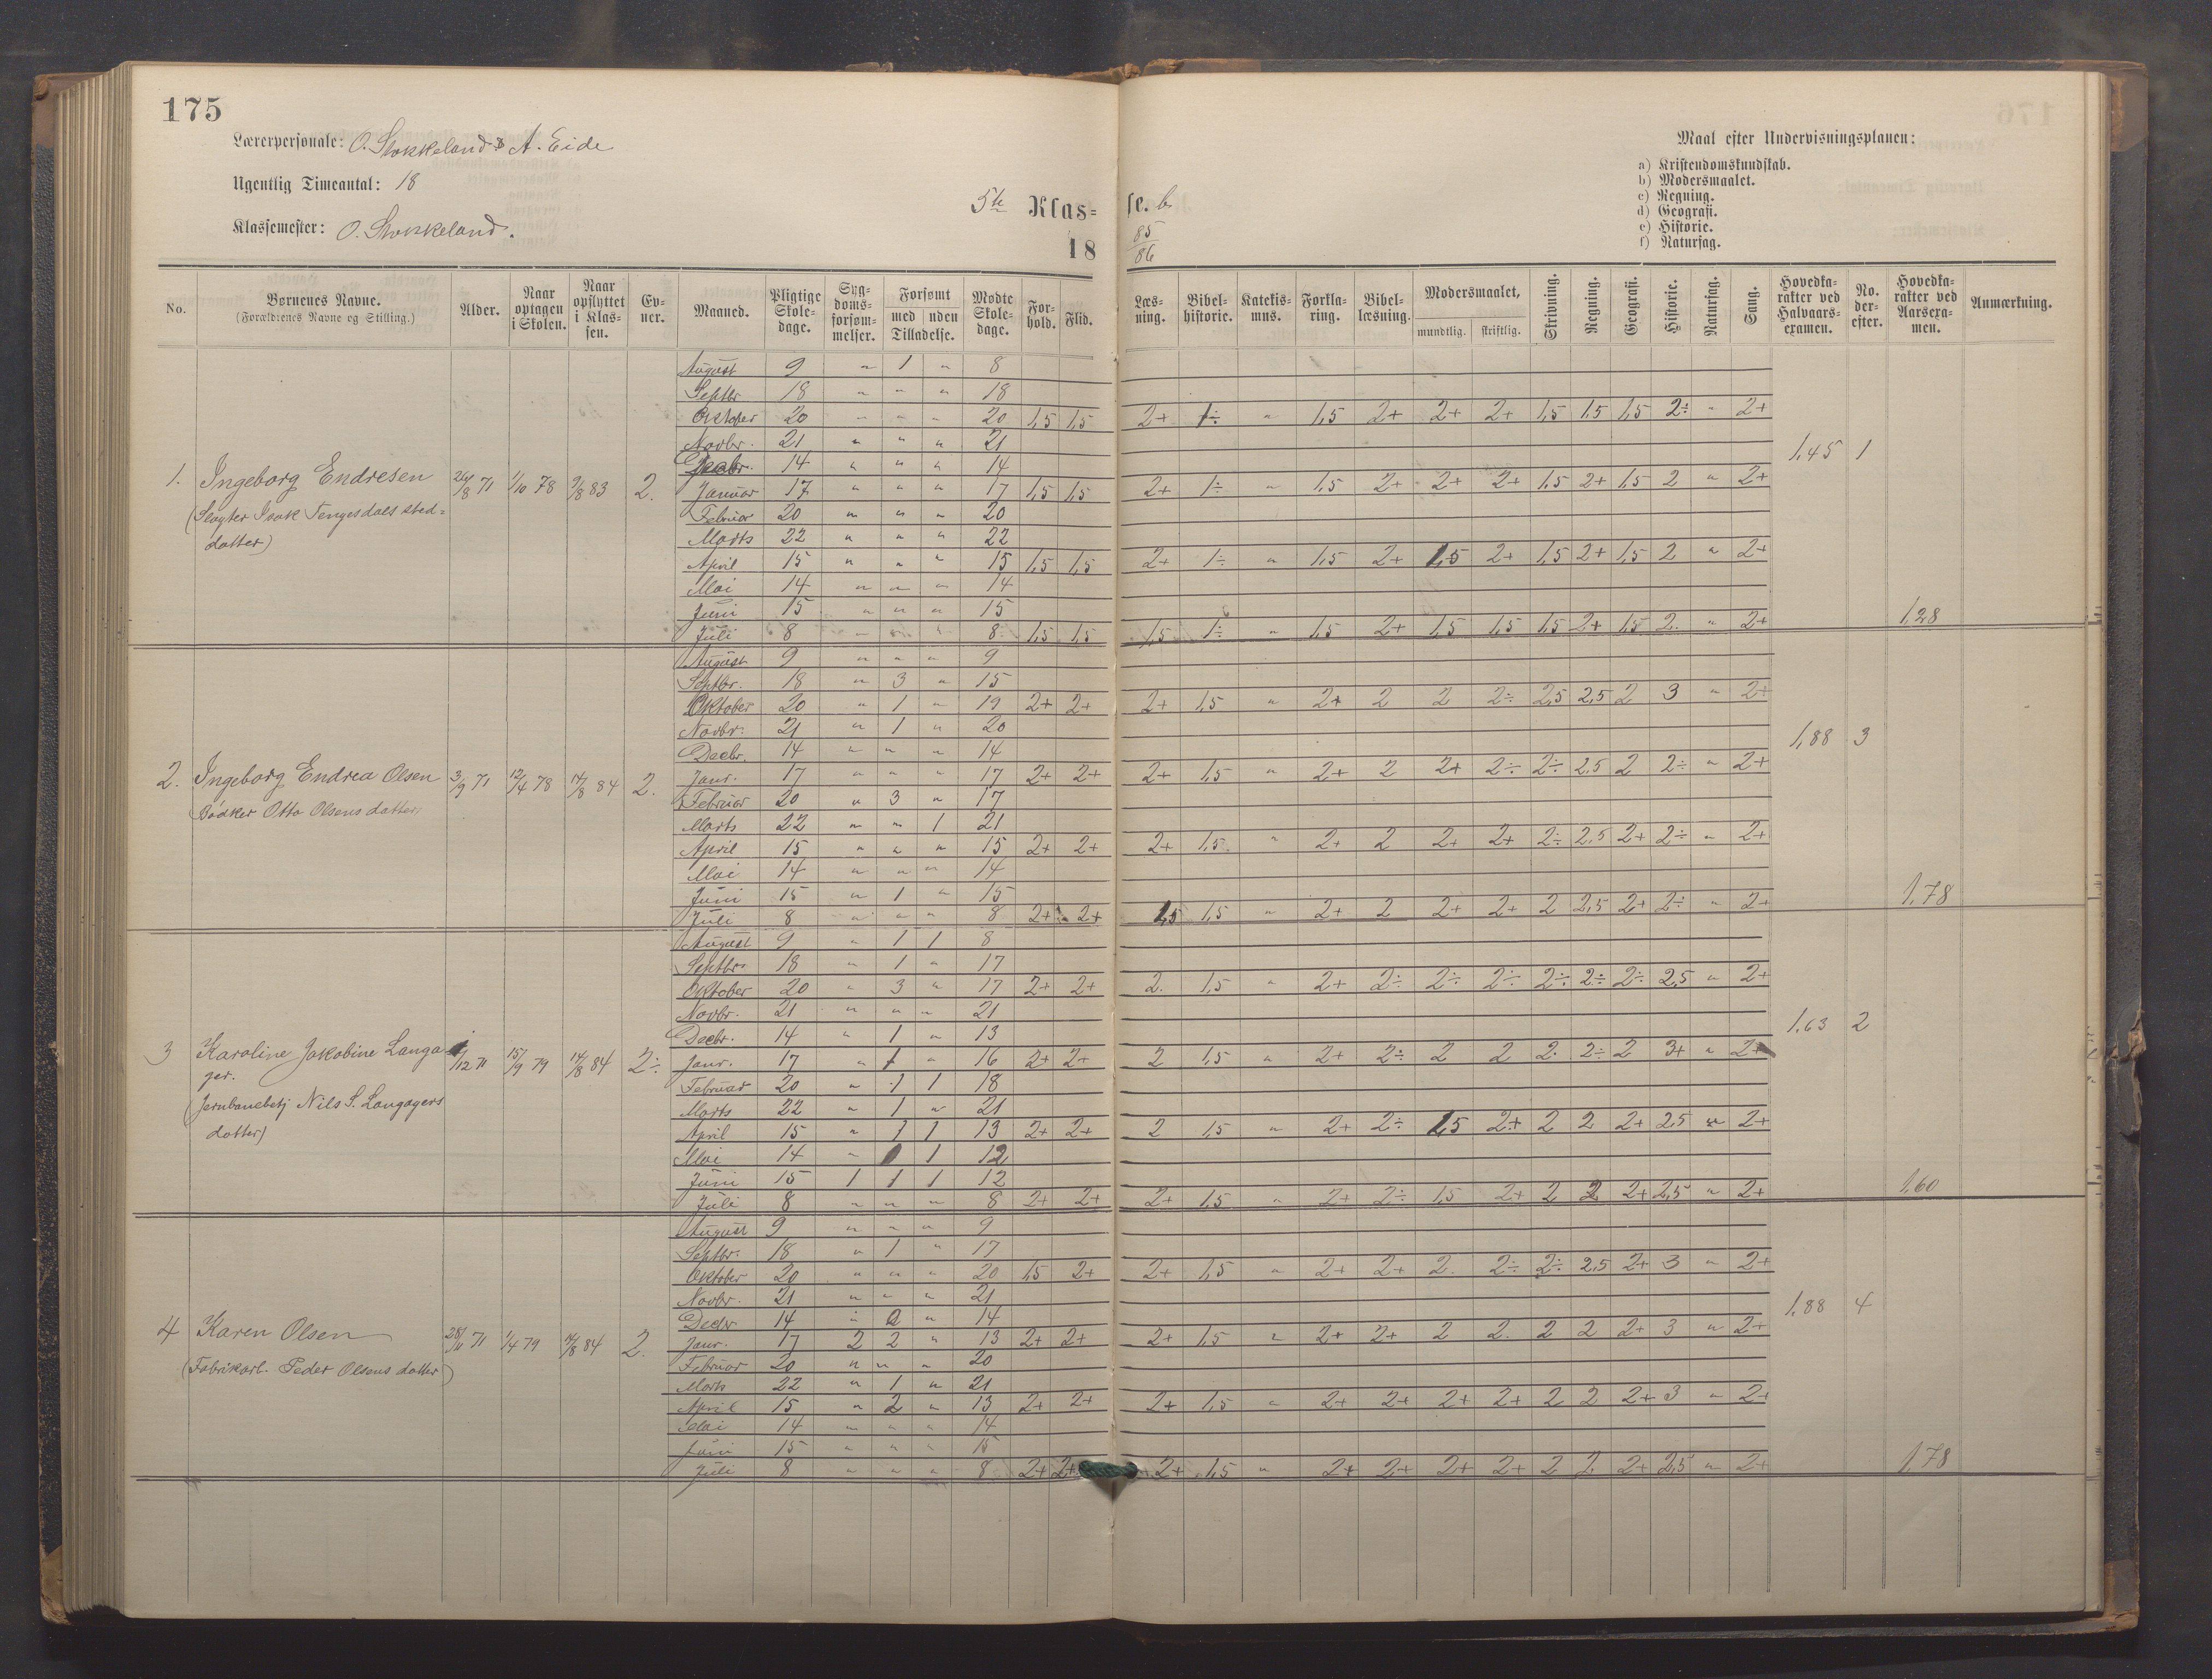 175
Lærerpersonale: O. Stokkeland & A. Eide
Ugentlig Timeantal: 18
Klassemester: O. Stokkeland.
5te Klasse. b.
18 85/86
Maal efter Undervisningsplanen:
a) Kristendomskundskab.
b) Modersmaalet.
c) Regning.
d) Geografi.
e) Historie.
f) Naturfag.
No. | Børnenes Navne. (Forældrenes Navne og Stilling.) | Alder. | Naar optagen i Skolen. | Naar opflyttet i Klassen. | Evner. | Maaned. | Pligtige Skoledage. | Sygdomsforsømmelser. | Forsømt med uden Tilladelse. | Mødte Skoledage. | Forhold. | Flid. | Læsning. | Bibelhistorie. | Katekismus. | Forklaring. | Bibellæsning. | Modersmaalet, mundtlig. skriftlig. | Skrivning. | Regning. | Geografi. | Historie. | Naturfag. | Sang. | Hovedkarakter ved Halvaarsexamen. | No. derefter. | Hovedkarakter ved Aarsexamen. | Anmærkning.
1. Ingeborg Endresen 24/8 71 1/10 78 9/8 83 2.
(Slagter Isak Tengesdals steddatter)
August 9 " 1 " 8
Septbr 18 " " " 18
Oktober 20 " " " 20 1,5 1,5 2+ 1÷ " 1,5 2+ 2+ 2+ 1,5 1,5 1,5 2÷ " 2+
Novbr. 21 " " " 21
Decbr. 14 " " " 14 1,45 1
Januar 17 " " " 17 1,5 1,5 2+ 1÷ " 1,5 2+ 2+ 2+ 1,5 2+ 1,5 2 " 2+
Februar 20 " " " 20
Marts 22 " " " 22
April 15 " " " 15 1,5 1,5 2+ 1÷ " 1,5 2+ 1,5 2+ 1,5 2+ 1,5 2 " 2+
Mai 14 " " " 14
Juni 15 " " " 15
Juli 8 " " " 8 1,5 1,5 1,5 1÷ " 1,5 2+ 1,5 1,5 1,5 2+ 1,5 2. " 2+ 1,28
2. Ingeborg Endrea Olsen 3/9 71 12/4 78 14/8 84 2.
Bødker Otto Olsens datter,
August 9 " " " 9
Septbr. 18 " 3 " 15
Oktober 20 " 1 " 19 2+ 2+ 2+ 1,5 " 2+ 2 2 2÷ 2,5 2,5 2 3 " 2+
Novbr. 21 " 1 " 20
Decbr. 14 " " " 14 1,88 3
Janr. 17 " " " 17 2+ 2+ 2+ 1,5 " 2+ 2 2+ 2÷ 2÷ 2,5 2 2÷ " 2+
Februar 20 " 3 " 17
Marts 22 " " 1 21
April 15 " " " 15 2+ 2+ 2+ 1,5 " 2+ 2 2+ 2+ 2÷ 2,5 2+ 2÷ " 2+
Mai 14 " " " 14
Juni 15 " 1 " 15
Juli 8 " " " 8 2+ 2+ 1,5 1,5 " 2+ 2 2+ 2+ 2 2,5 2+ 2÷ " 2+ 1,78
3 Karoline Jakobine Langager. /12 71 15/9 79 14/8 84 2÷
(Jernbanebetj Nils S. Langagers datter)
August 9 " 1 1 8
Septbr 18 " 1 " 17
Oktober 20 " 3 " 17 2+ 2+ 2. 1,5 " 2+ 2÷ 2÷ 2÷ 2÷ 2÷ 2÷ 2,5 " 2+
Novbr. 21 " " " 21
Decbr. 14 " 1 " 13 1,63 2
Janr. 17 " 1 " 16 2+ 2+ 2 1,5 " 2+ 2÷ 2 2 2. 2÷ 2 3+ " 2+
Februar 20 " 1 1 18
Marts 22 " 1 " 21
April 15 " 1 1 13 2+ 2+ 2 1,5 " 2+ 2÷ 1,5 2+ 2 2 2+ 2,5 " 2+
Mai 14 " 1 12
Juni 15 1 1 1 12
Juli 8 " " " 8 2+ 2+ 2+ 1,5 " 2+ 2÷ 1,5 2+ 2 2 2+ 2,5 " 2+ 1,60
4 Karen Olsen 28/11 71 1/4 79 14/8 84 2.
(Fabrikarb. Peder Olsens datter)
August 9 " " " 9
Septbr. 18 " 1 " 17
Oktober 20 " " " 20 1,5 2+ 2+ 1,5 " 2+ 2+ 2. 2÷ 2÷ 2,5 2+ 3 " 2+
Novbr. 21 " " " 21
Decbr 14 " " 14 1,88 4
Janr. 17 2 2 " 13 2+ 2+ 2+ 1,5 " 2+ 2+ 2 2. 2 2 2+ 3 " 2+
Februar 20 " " " 20
Marts 22 " 1 " 21
April 15 " 2 " 13 2+ 2+ 2+ 1,5 " 2+ 2+ 2+ 2+ 2 2 2+ 3 " 2+
Mai 14 " " " 14
Juni 15 " " " 15
Juli 8 " " " 8 2+ 2+ 2+ 1,5 " 2+ 2+ 2+ 2+ 2 2. 2+ 2,5 " 2+ 1,78